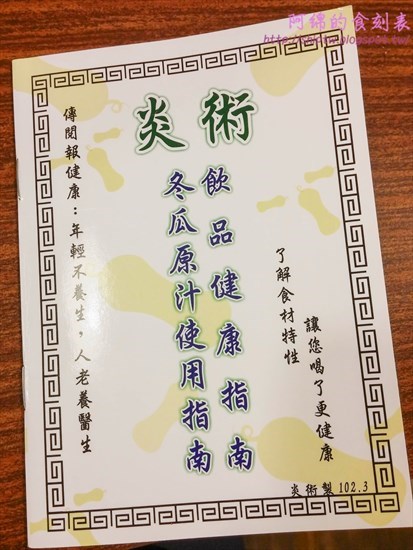 阿綿的食刻表
炎術
飲品健康指南
冬瓜原汁使用指南
讓您喝了更健康
了解食材特性
傳閱報健康：年輕不養生，人老養醫生
炎術製 102.3